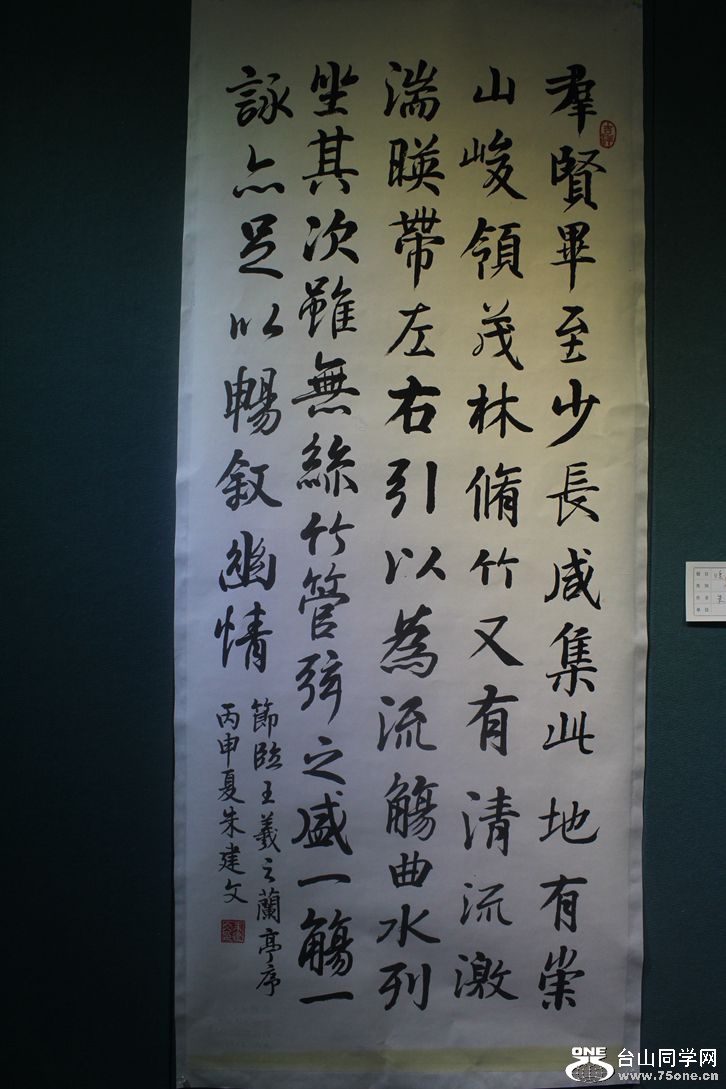 羣賢畢至少長咸集此地有崇
山峻領茂林脩竹又有清流激
湍暎帶左右引以為流觴曲水列
坐其次雖無絲竹管弦之盛一觴一
詠亦足以暢敘幽情
節臨王羲之蘭亭序
丙申夏朱建文
ONE
台山同学网
www.75one.cn